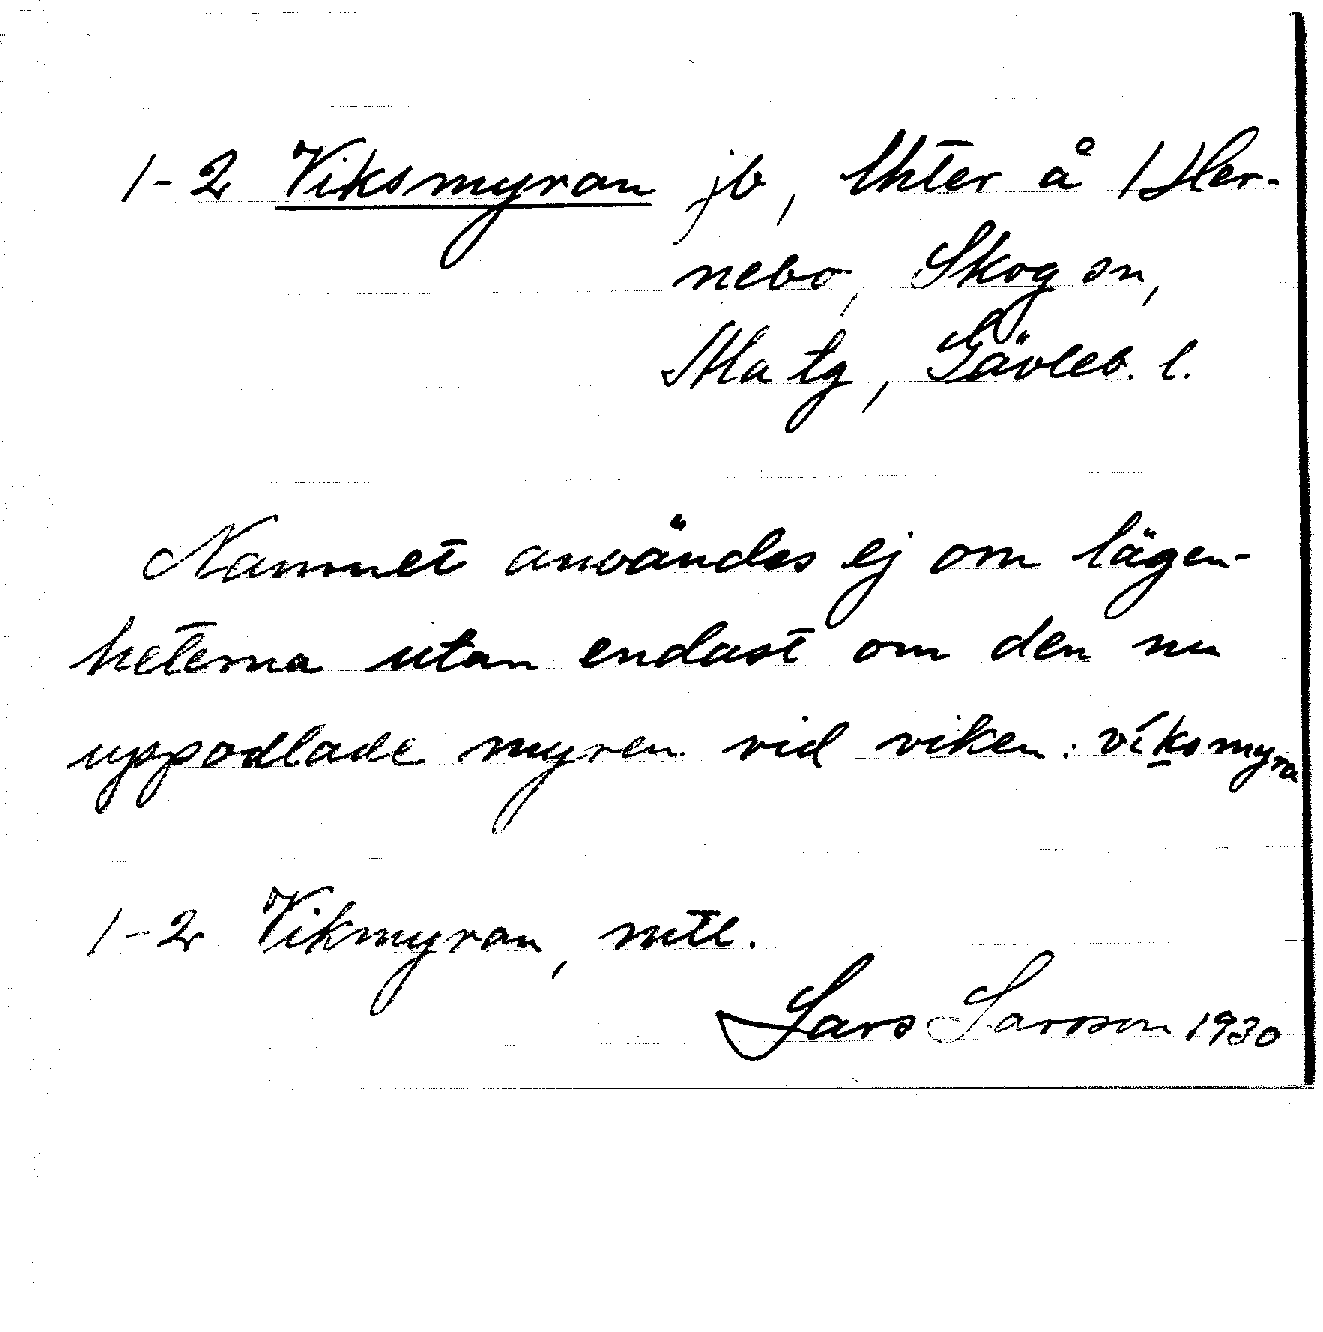 1-2 Viksmyran jb, lhter å 1 Her-
nebo, Skog sn,
Ala tg, Gävleb. l.
Namnet användes ej om lägen-
heterna utan endast om den nu
uppodlade myren vid viken: víksmyra
1-2 Vikmyran, mtl.
Lars Larsson 1930